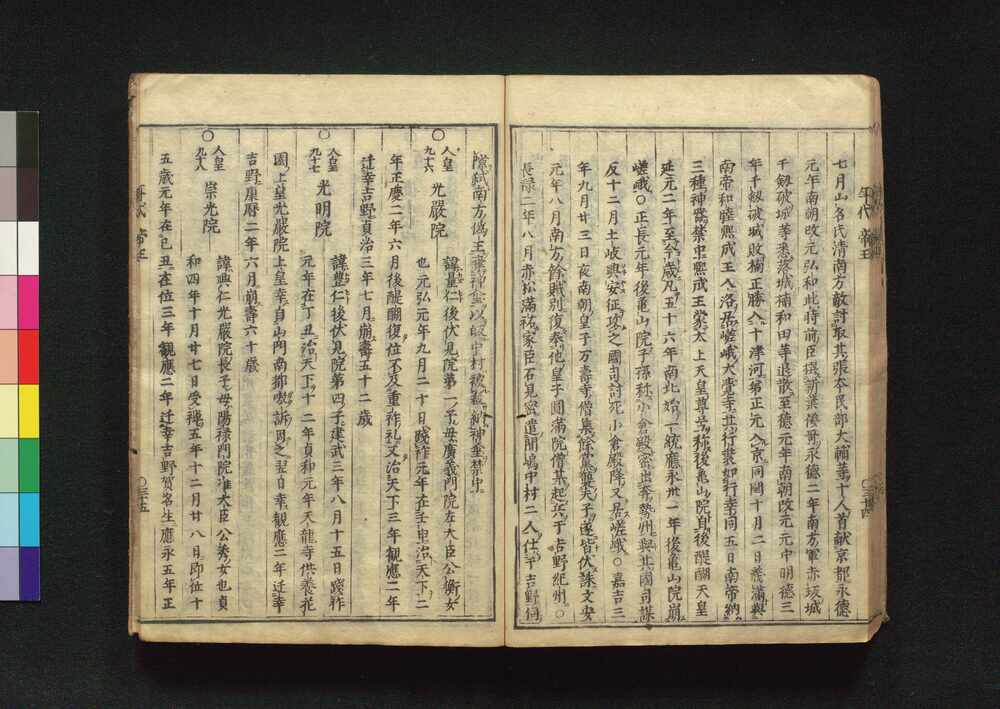 七月山名氏清南方敵討取其張本民部大輔等十人首献京都永徳
元年南朝改元弘和此時前臣撰新葉倭哥永徳二年南方軍赤坂城
千剱破城等悉落城楠和田等退散至徳元年南朝改元元中明徳三
年千剱破城敗楠正勝入十津河第正元入京同閏十月二日義滿與
南帝和睦熙成王入洛居嵯峨大覚寺其行装如行幸同五日南帝納
三種神器禁中熙成王蒙太上天皇尊号称後亀山院自後醍醐天皇
延元二年至今歳凡五十六年南北始一統應永卅一年後亀山院崩
嵯峨〇正長元年後亀山院子孫称小倉殿密出奔勢州與其國司謀
反十二月土岐與安征攻之國司討死小倉殿降又居嵯峨〇嘉吉三
年九月廿三日夜南朝皇子万壽寺僧集餘黨襲天子遂皆伏誅文安
元年八月南方餘賊別復奉他皇子圓滿院僧其起兵于吉野紀州〇
長禄二年八月赤松滿祐家臣石見密遣間嶋中村二人仕于吉野伺
年代 帝王
〇三十四
隙弑南方偽主奪神璽以皈中村被殺納神璽禁中
〇人皇九十六 光嚴院 諱量仁後伏見院第一子母廣義門院左大臣公衡女
也元弘元年九月二十日踐祚元年在壬申治天下二
年正慶二年六月後醍醐復位不及重祚礼又治天下三年観應二年
迁幸吉野貞治三年七月崩壽五十二歳
〇人皇九十七 光明院 諱豊仁後伏見院第四子建武三年八月十五日踐祚
元年在丁丑治天下十二年貞和元年天龍寺供養花
園上皇光嚴院上皇幸自山門南都嗷訴同之翌日幸観應二年迁幸
吉野康暦二年六月崩壽六十歳
〇人皇九十八 崇光院 諱興仁光嚴院長子母陽禄門院准大臣公秀女也貞
和四年十月廿七日受禅五年十二月廿八日即位十
五歳元年在己丑在位三年観應二年迁幸吉野賀名生應永五年正
年代 帝王
〇三十五